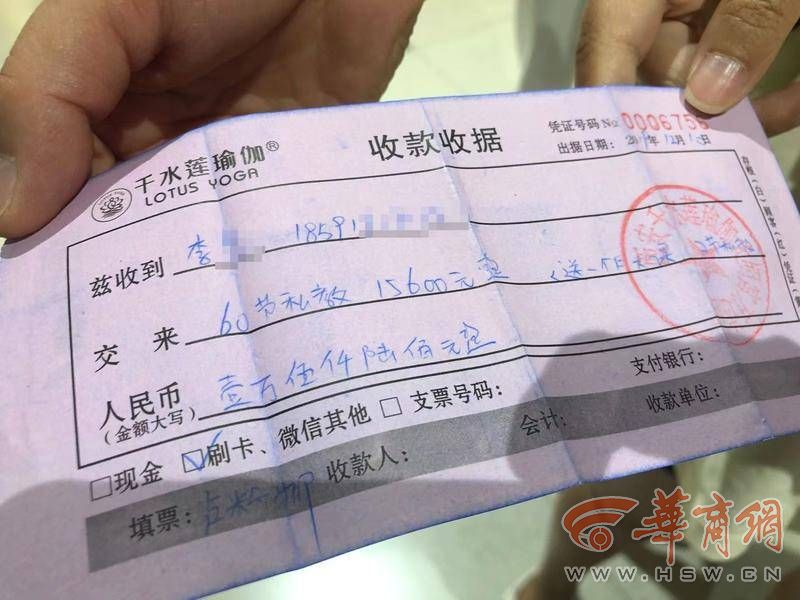 千水莲瑜伽®
LOTUS YOGA
收款收据
凭证号码 No 0006756
出据日期：20 年12月 日
兹收到 李 18591
交来 60节私教 15600元整 （送一个月
人民币 壹万伍仟陆佰元整
（金额大写）
□现金 ☑刷卡、微信其他 □支票号码： 支付银行：
填票： 收款人： 会计： 收款单位：
华商网
WWW.HSW.CN